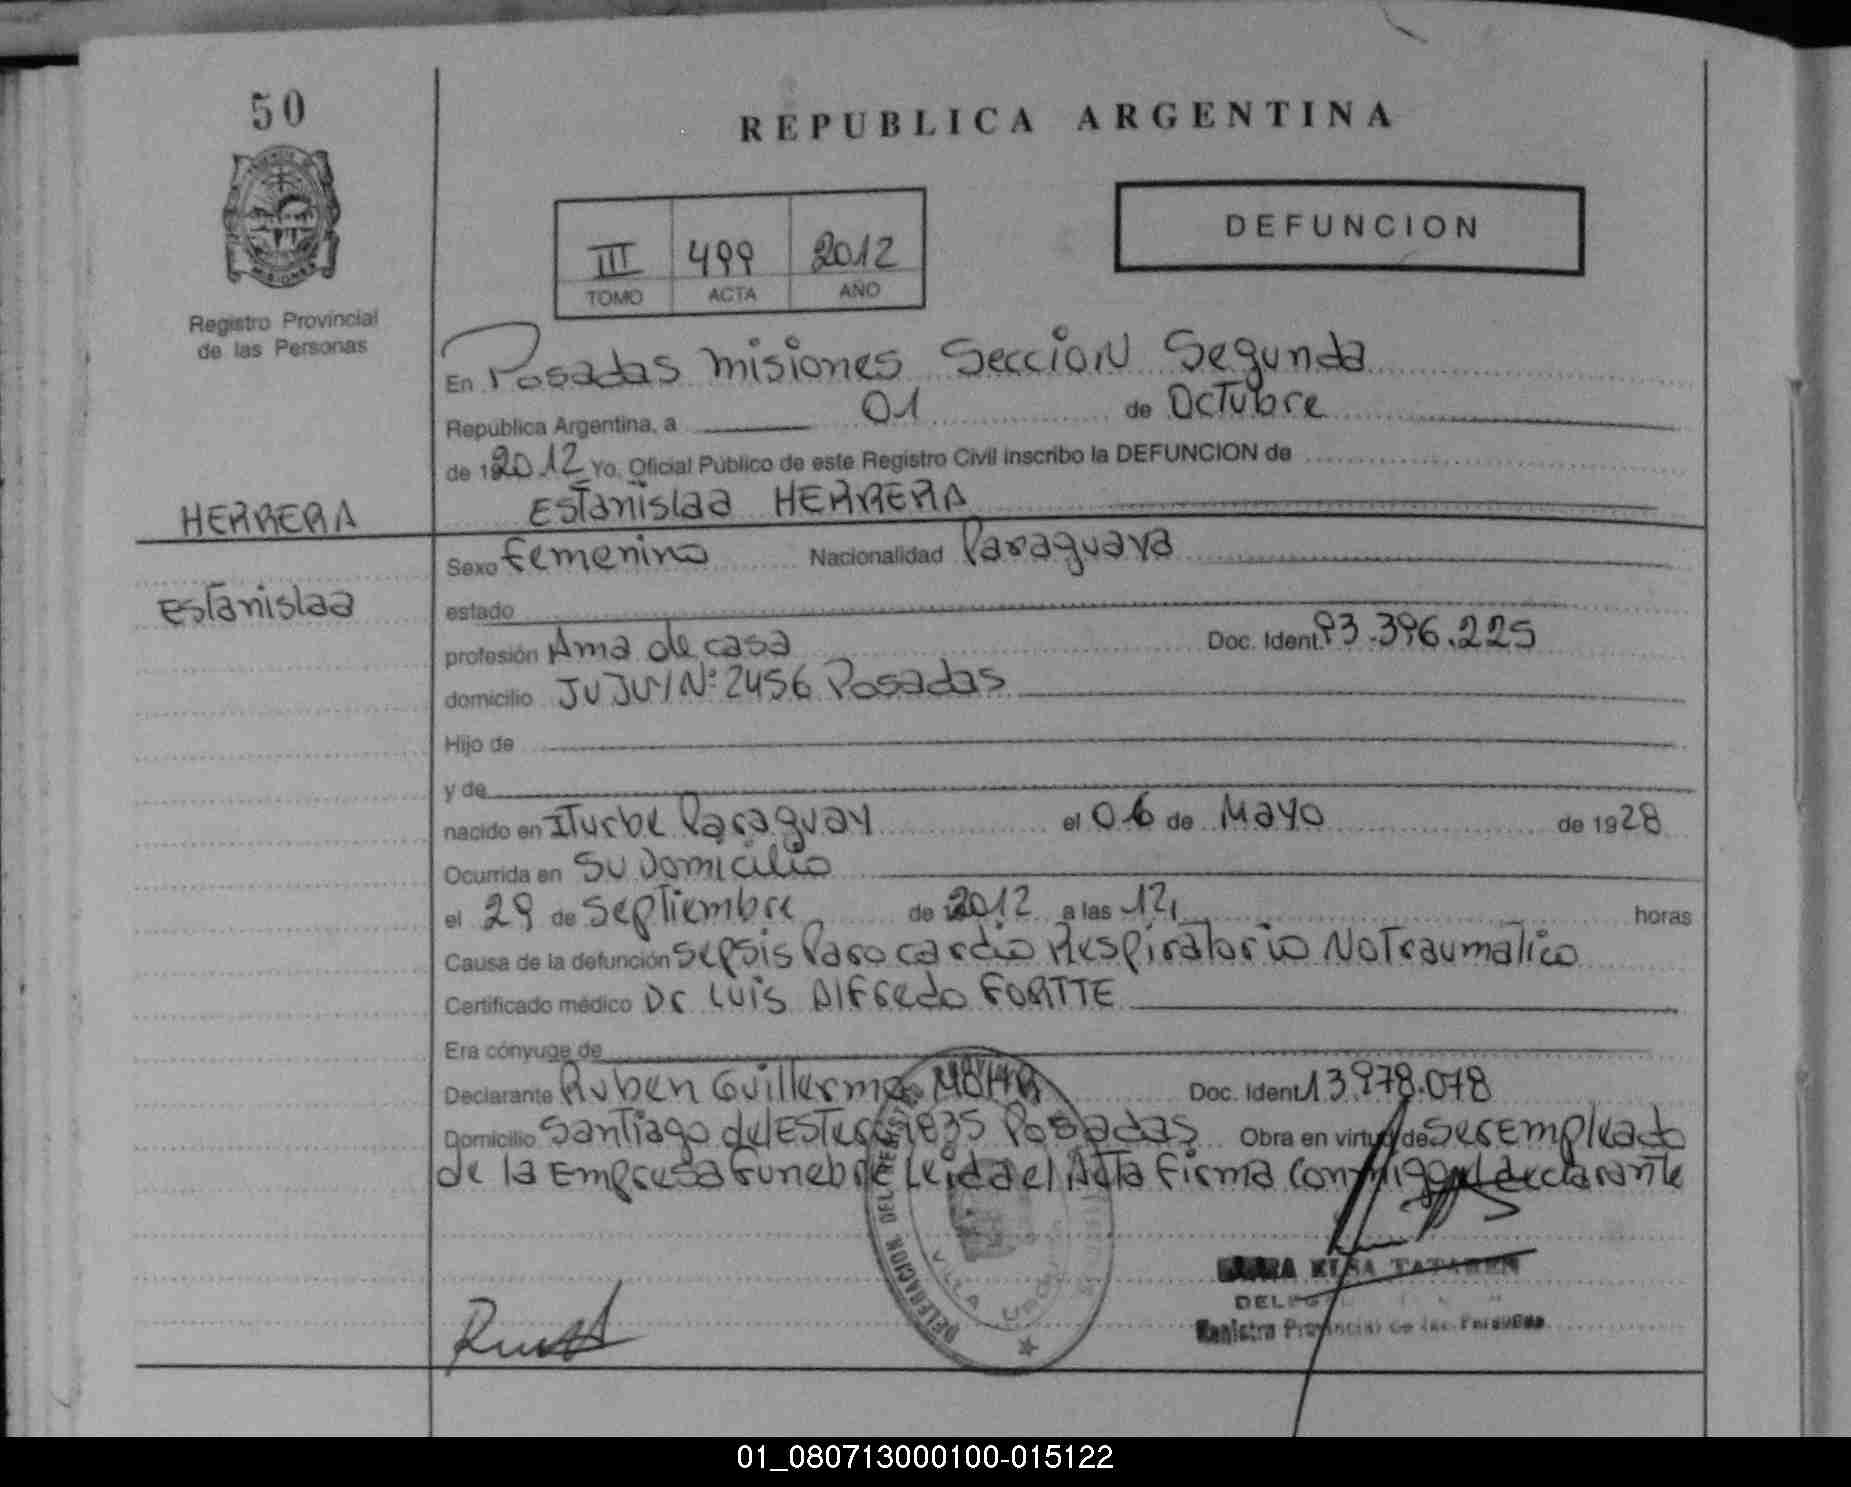 50
REPUBLICA ARGENTINA
DEFUNCION
III 499 2012
TOMO ACTA AÑO
Registro Provincial
de las Personas
En Posadas Misiones Seccion Segunda
Republica Argentina, a 01 de Octubre
de 192012 Yo, Oficial Público de este Registro Civil inscribo la DEFUNCION de
Estanislaa HERRERA
HERRERA
Estanislaa
Sexo Femenino Nacionalidad Paraguaya
estado
profesión Ama de casa Doc. Ident. 93.396.225
domicilio JUJUY Nº 2456 Posadas
Hijo de
y de
nacido en Iturbe Paraguay el 06 de Mayo de 1928
Ocurrida en Su Domicilio
el 29 de Septiembre de 2012 a las 12, horas
Causa de la defunción Sepsis Paro cardio Respiratorio No Traumatico
Certificado médico Dr Luis Alfredo FORTTE
Era cónyuge de
Declarante Ruben Guillermo Doc. Ident. 13.978.078
Domicilio Santiago del Estero 1835 Posadas Obra en virtud de Ser empleado
de la Empresa Funebre Leida el Acta Firma Conmigo el declarante
DELEGACION DEL
VILLA
Registro Provincial de las Personas
01_080713000100-015122